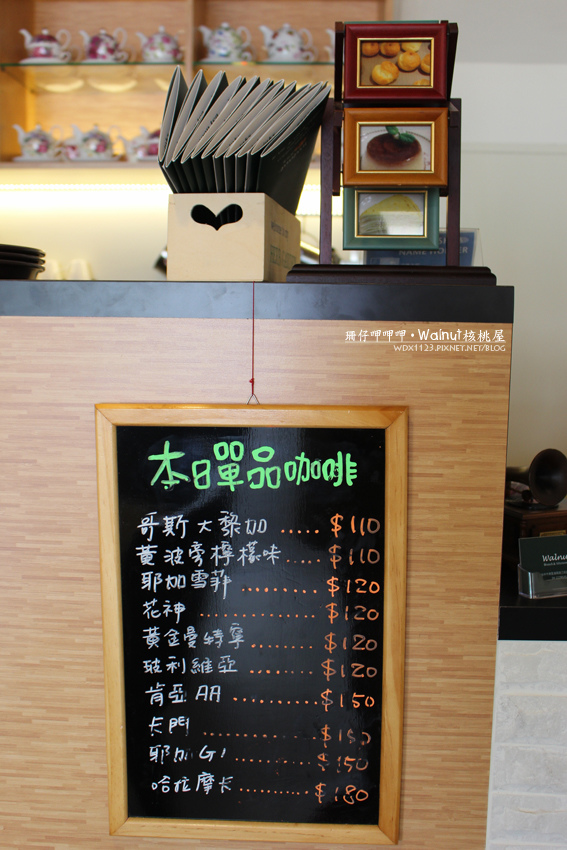 珊仔呷呷呷·Walnut核桃屋
WDX1123.PIXNET.NET/BLOG
本日單品咖啡
哥斯大黎加.....$110
黃波旁檸檬味....$110
耶加雪菲.........$120
花神...............$120
黃金曼特寧........$120
玻利維亞........$120
肯亞AA..........$150
卡門.............$150
耶加G1..........$150
哈拉摩卡..........$180
Walnut